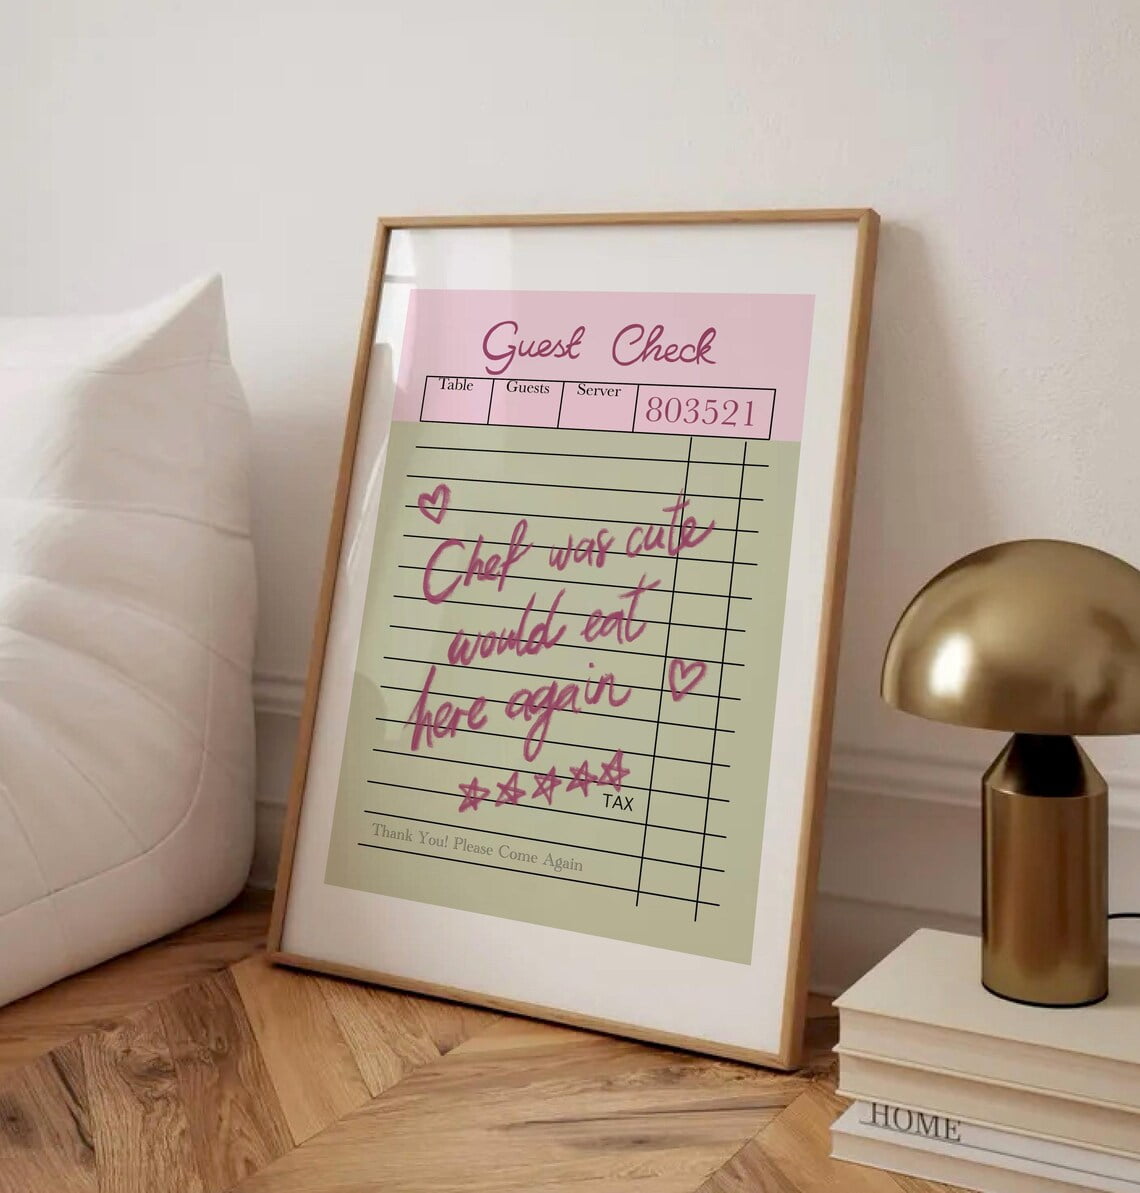 Guest Check
Table Guests Server 803521
Chef was cute
would eat
here again
TAX
Thank You! Please Come Again
HOME